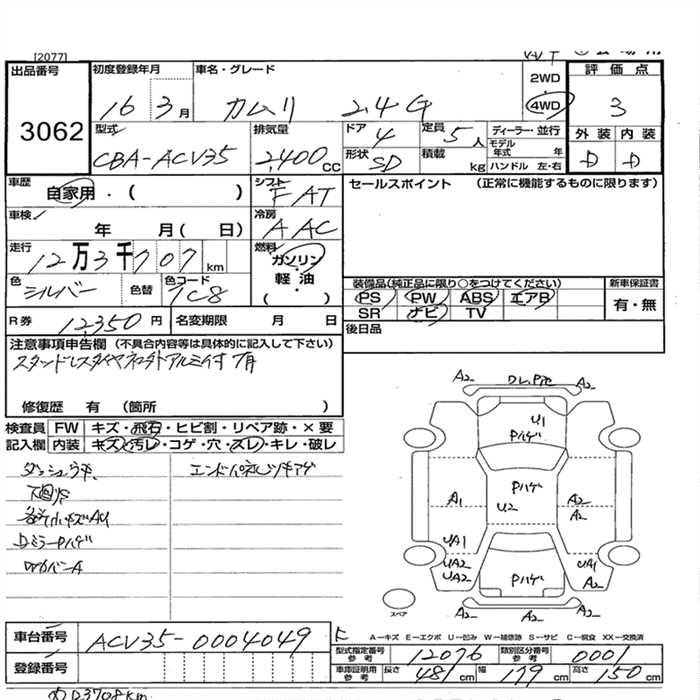 [2077]
出品番号
3062
初度登録年月
16 3 月
車名・グレード
カムリ 2.4G
2WD
4WD
評価点
3
外装 内装
D D
型式
CBA-ACV35
排気量
2,400 CC
ドア
4
定員
5 人
形状
SD
積載
kg
ディーラー・並行
モデル年式 年
ハンドル 左・右
車歴
自家用・( )
シフト
FAT
車検
年 月( 日)
冷房
AAC
走行
12万3千707 km
燃料
ガソリン・軽油
( )
色
シルバー
色替
色コード
1C8
R券 12,350 円
名変期限 月 日
セールスポイント (正常に機能するものに限ります)
装備品(純正品に限り○をつけてください)
PS PW ABS エアB
SR ナビ TV
新車保証書
有・無
後日品
注意事項申告欄 (不具合内容等は具体的に記入して下さい)
修復歴 有 (箇所 )
検査員 FW キズ・飛石・ヒビ割・リペア跡・×要
記入欄 内装 キズ・汚レ・コゲ・穴・スレ・キレ・破レ
下廻サビ
DミラーPハゲ
A2 A2
U1
Pハゲ
A1
Pハゲ
U2
A2
A2
UA1
UA2
UA2
Pハゲ
UA1
A2
A2 A2 A2
スペア
A－キズ E－エクボ U－凹み W－補修跡 S－サビ C－腐食 XX－交換済
車台番号 ACV35-0004049
登録番号
型式指定番号 参考 12076
類別区分番号 参考 0001
車庫証明用 参考 長さ 481 cm 幅 179 cm 高さ 150 cm